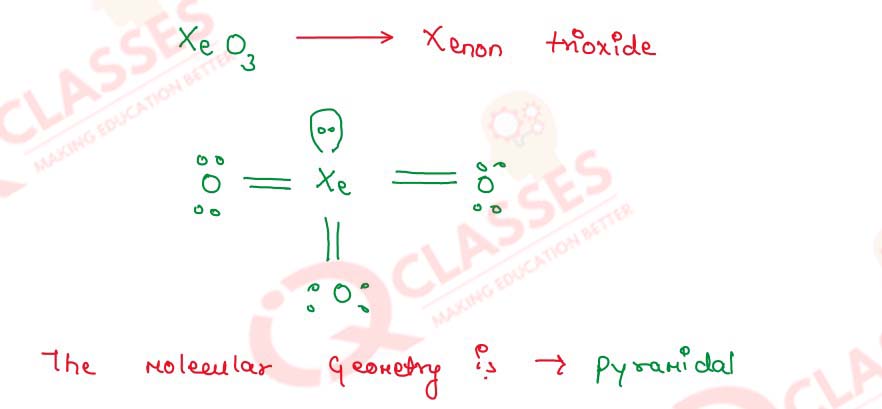 XeO3 → Xenon trioxide
O = Xe = O
||
O
The molecular Geometry is → Pyramidal
CLASSES
MAKING EDUCATION BETTER
CLASSES
MAKING EDUCATION BETTER